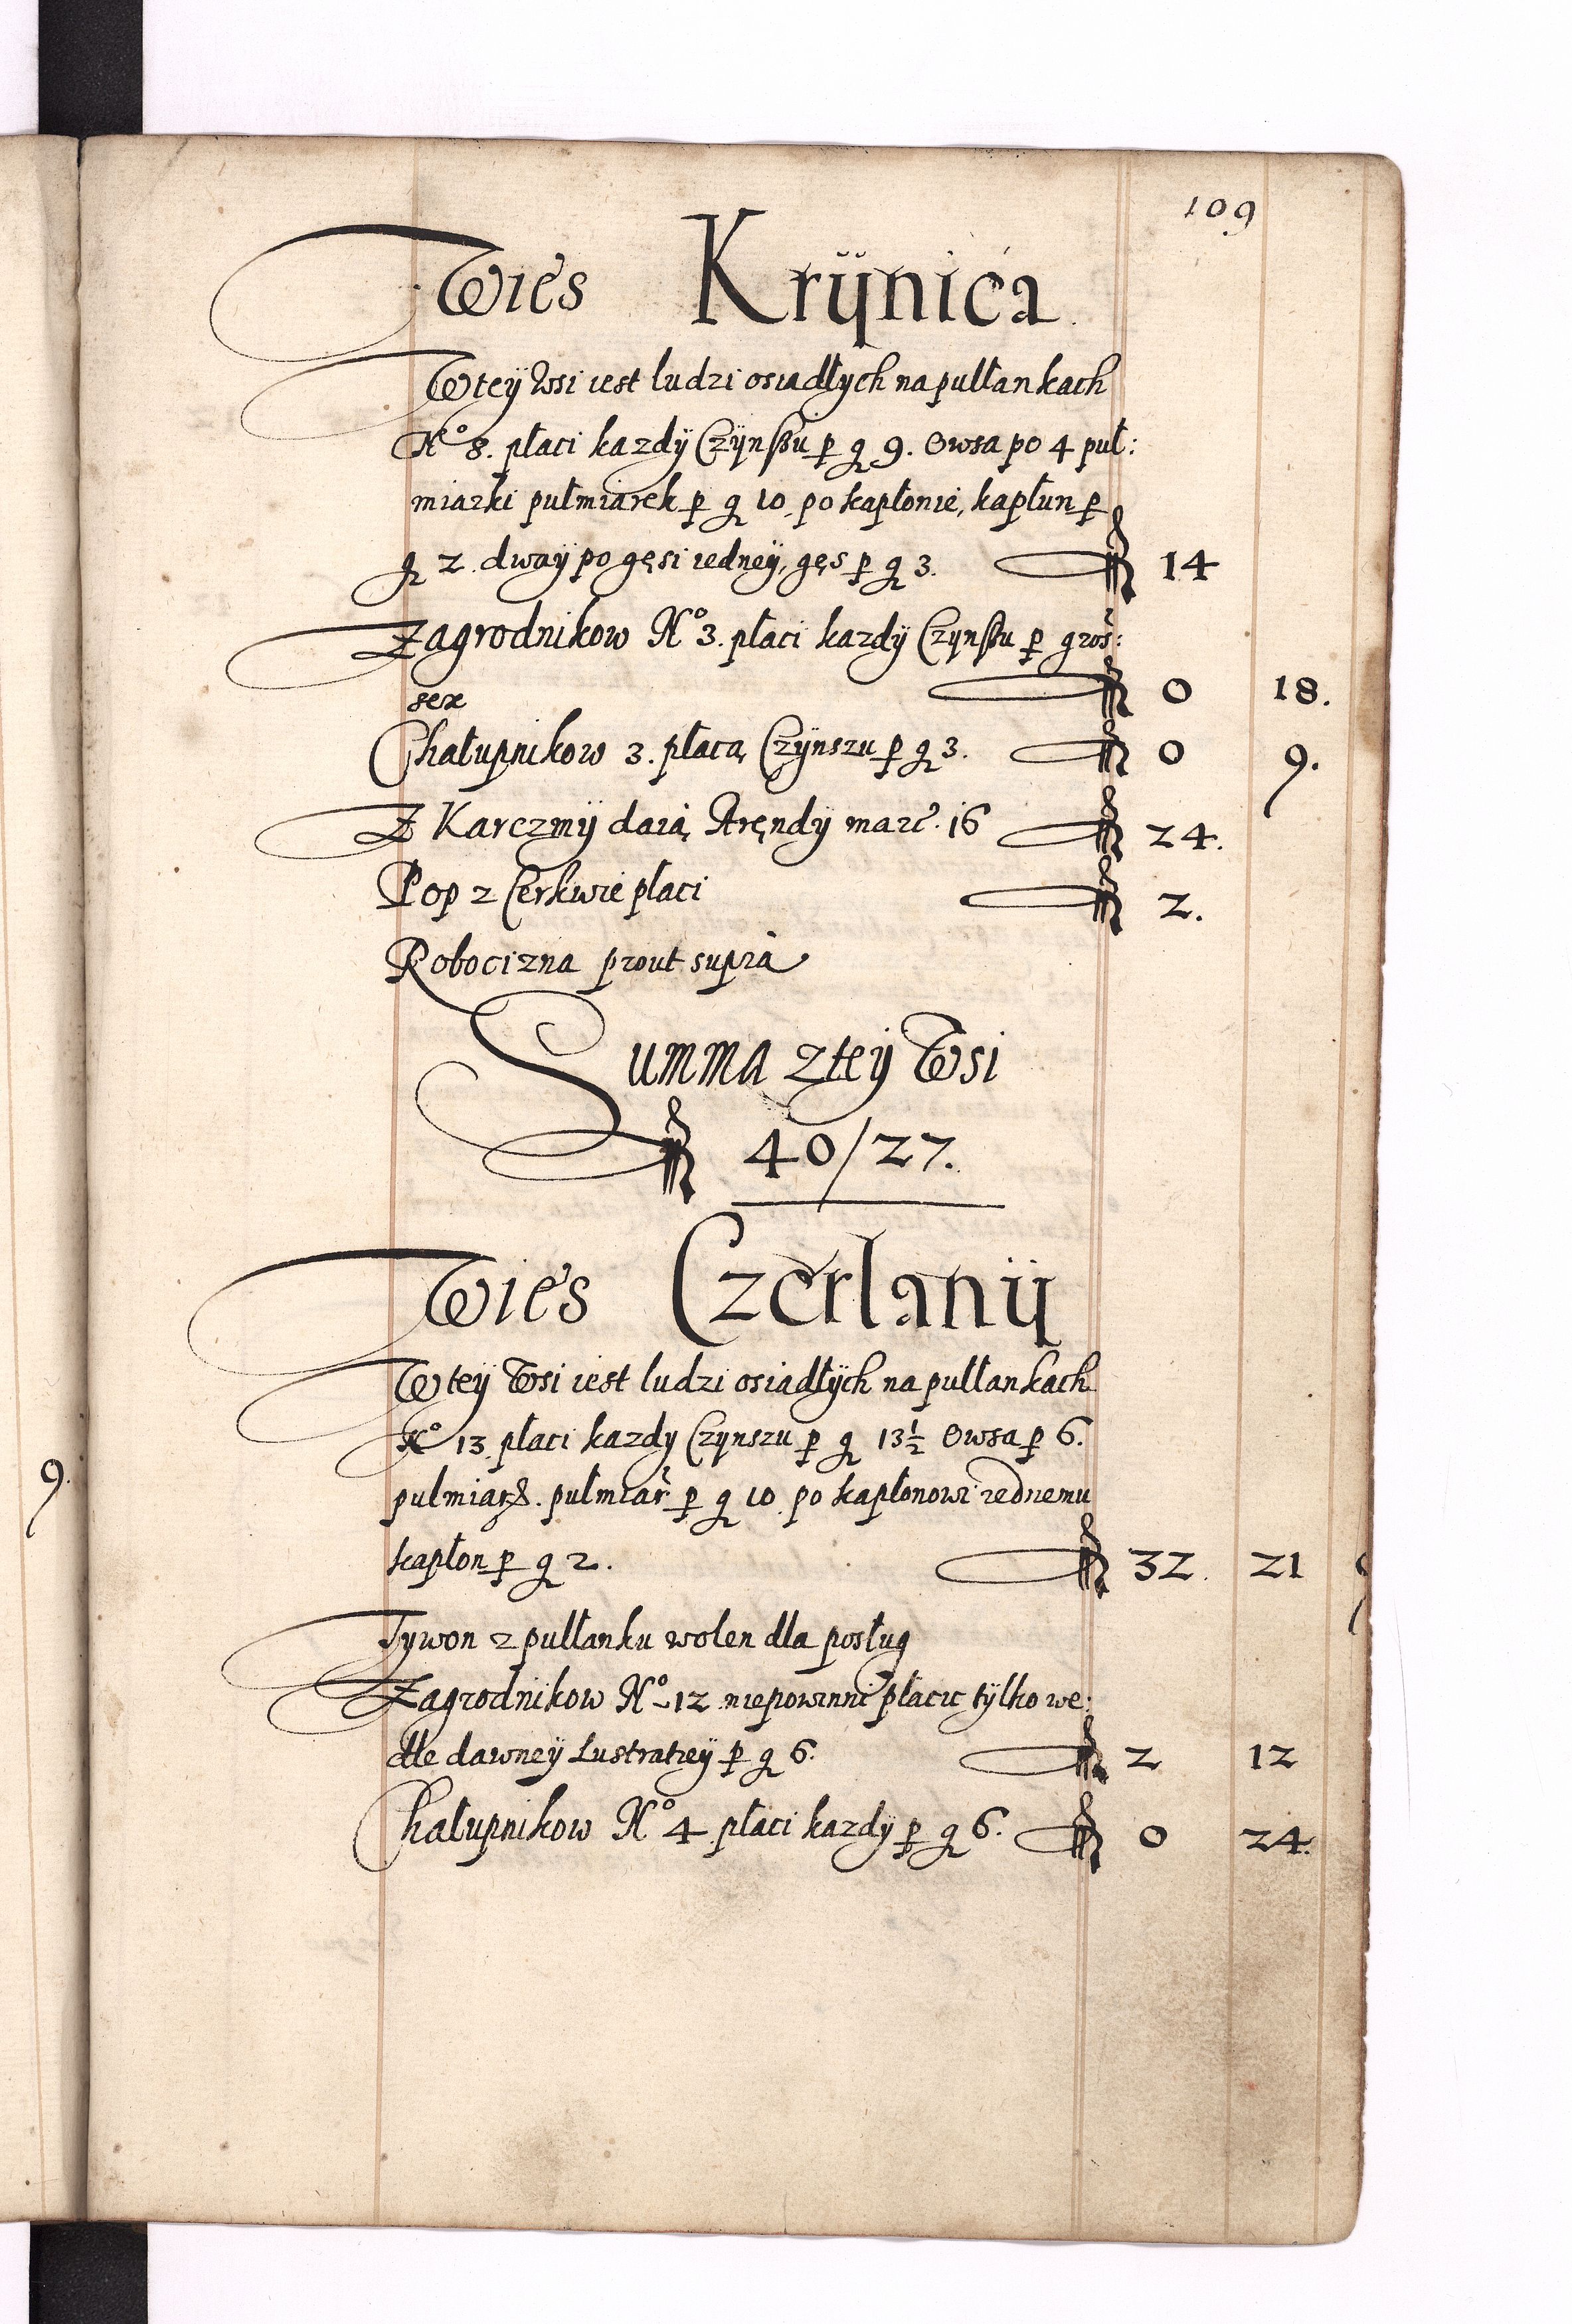 109
Wies Krÿnica
Wteÿ Wsi iest ludzi osiadłych na pułłankach
No 8. płaci kazdÿ Czÿnßu p g 9. Owsa po 4 puł:
miarki pułmiarek p g 10. po kapłonie, kapłun p
g 2. dwaÿ po gęsi iedneÿ, gęs p g 3. 14
Zagrodnikow No 3. płaci kazdÿ Czynßu p groš:
sex 0 18.
Chałupnikow 3. płacą Czÿnszu p g 3. 0 9.
Z Karczmÿ daią Aręndÿ marc. 16 24.
Pop z Cerkwie płaci 2.
Robocizna prout supra
Summa zteÿ Wsi
40/27.
Wies Czerlanÿ
Wteÿ Wsi iest ludzi osiadłÿch na pułłankach
No 13. płaci kazdy Czynszu p g 13½ Owsa p 6.
9.
pułmiar. pułmiar p g 10. po kapłonowi iednemu
kapłon p g 2. 32. 21
Tywon z pułłanku wolen dla posług
Zagrodnikow No 12 niepowinni płacic tÿlko we:
dle dawneÿ Lustratieÿ p g 6. 2 12
Chałupnikow No 4 płaci kazdy p g 6. 0 24.